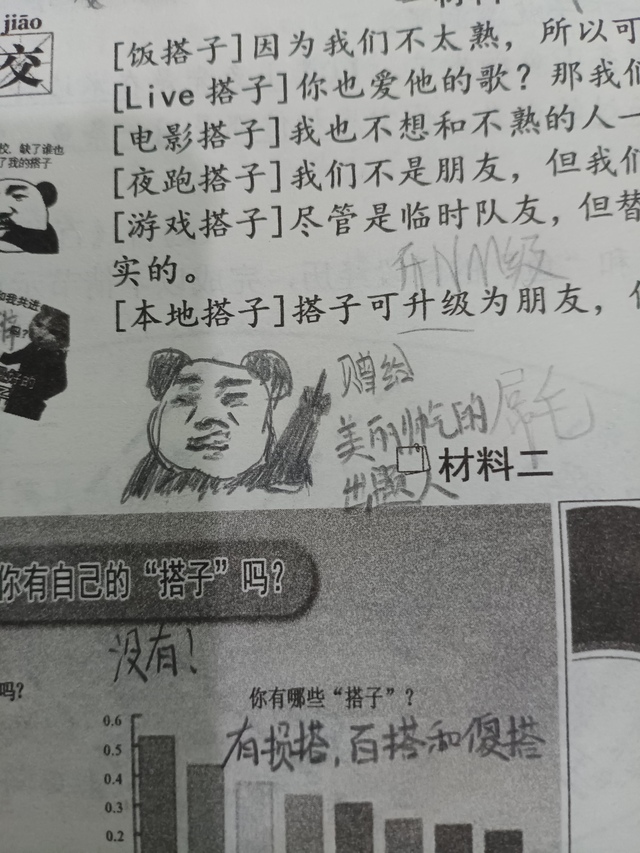 jiāo
交
[饭搭子]因为我们不太熟，所以可
[Live 搭子]你也爱他的歌？那我们
[电影搭子]我也不想和不熟的人一
[夜跑搭子]我们不是朋友，但我们
[游戏搭子]尽管是临时队友，但替
实的。
升NM级
[本地搭子]搭子可升级为朋友，但
校，缺了谁也
了我的搭子
和我共进
吗？
赠给
美丽帅气的
屌毛
出题人
材料二
你有自己的“搭子”吗？
没有！
吗？
你有哪些“搭子”？
有损搭，百搭和傻搭
0.6
0.5
0.4
0.3
0.2